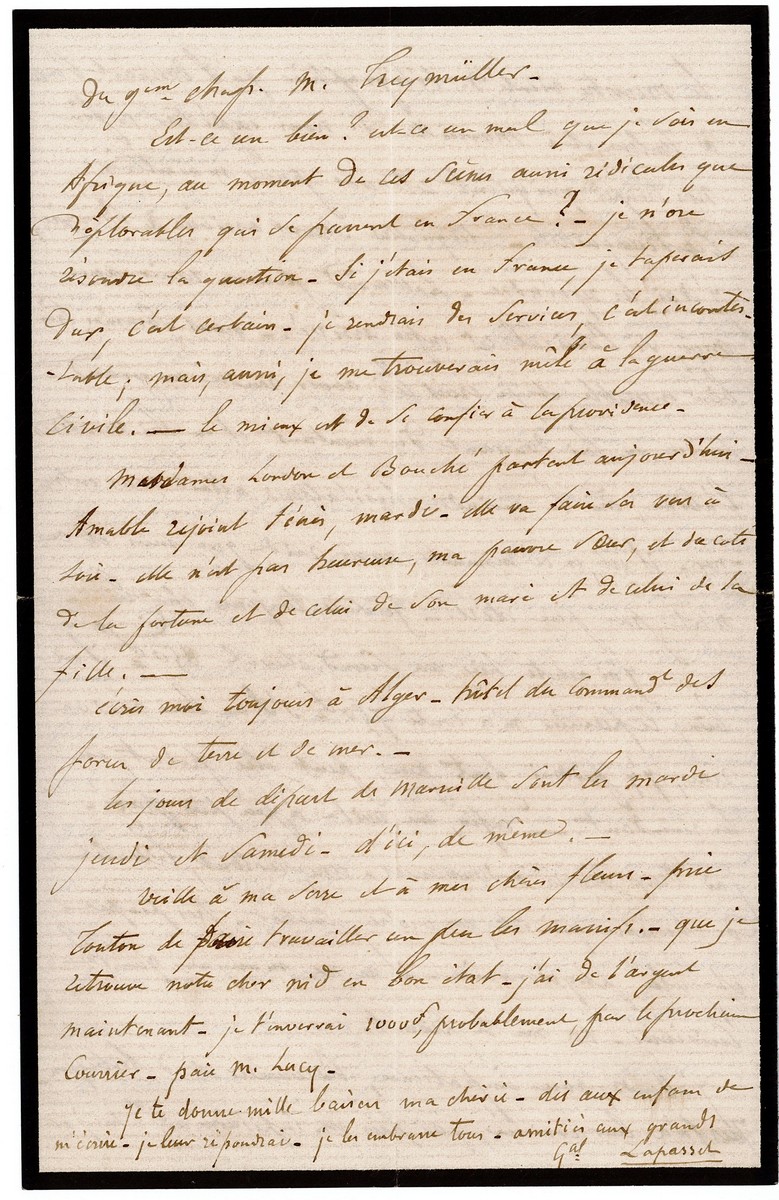 du 9em chass. M. Treymüller -
Est-ce un bien ? est-ce un mal que je sois en
Afrique, au moment de ces scènes aussi ridicules que
déplorables qui se passent en France ? - je n'ose
résoudre la question - Si j'étais en France, je taperais
dur, c'est certain - je rendrais des services, c'est incontes-
-table ; mais, aussi, je me trouverais mêlé à la guerre
civile. — le mieux est de se confier à la providence -
Mesdames London et Bouché partent aujourd'hui -
Amable rejoint Ténès, mardi - elle va faire ses vers à
soie - elle n'est pas heureuse, ma pauvre sœur, et du coté
de la fortune et de celui de son mari et de celui de sa
fille. —
écris moi toujours à Alger - hôtel du Commandt des
forces de terre et de mer. -
les jours de départ de Marseille sont les mardi
jeudi et Samedi - d'ici, de même. —
Veille à ma serre et à mes chères fleurs - prie
Tonton de faire travailler un peu les massifs. - que je
retrouve notre cher nid en bon état - j'ai de l'argent
maintenant - je t'enverrai 1000f, probablement, par le prochain
Courrier - paie M. Lucy -
Je te donne mille baisers ma chérie - dis aux enfans de
m'écrire - je leur répondrai - je les embrasse tous - amitiés aux grands
Gal Lapasset